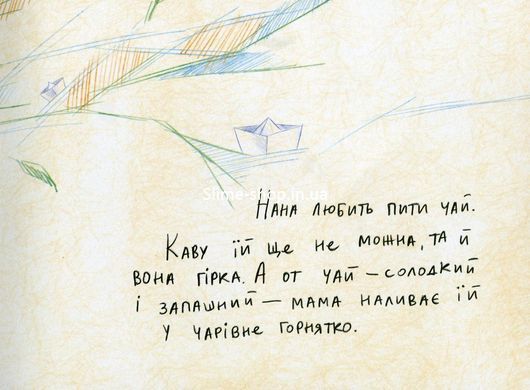 Slime-shop.in.ua
Нана любить пити чай.
Каву їй ще не можна, та й
вона гірка. А от чай – солодкий
і запашний – мама наливає їй
у чарівне горнятко.